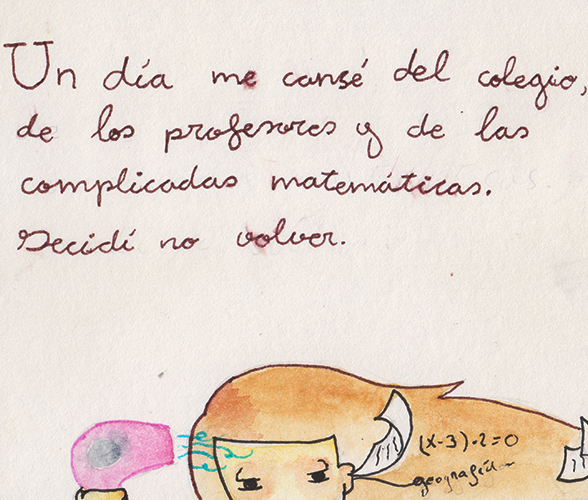 Un día me cansé del colegio,
de los profesores y de las
complicadas matemáticas.
Decidí no volver.
(x-3)·2=0
geografía